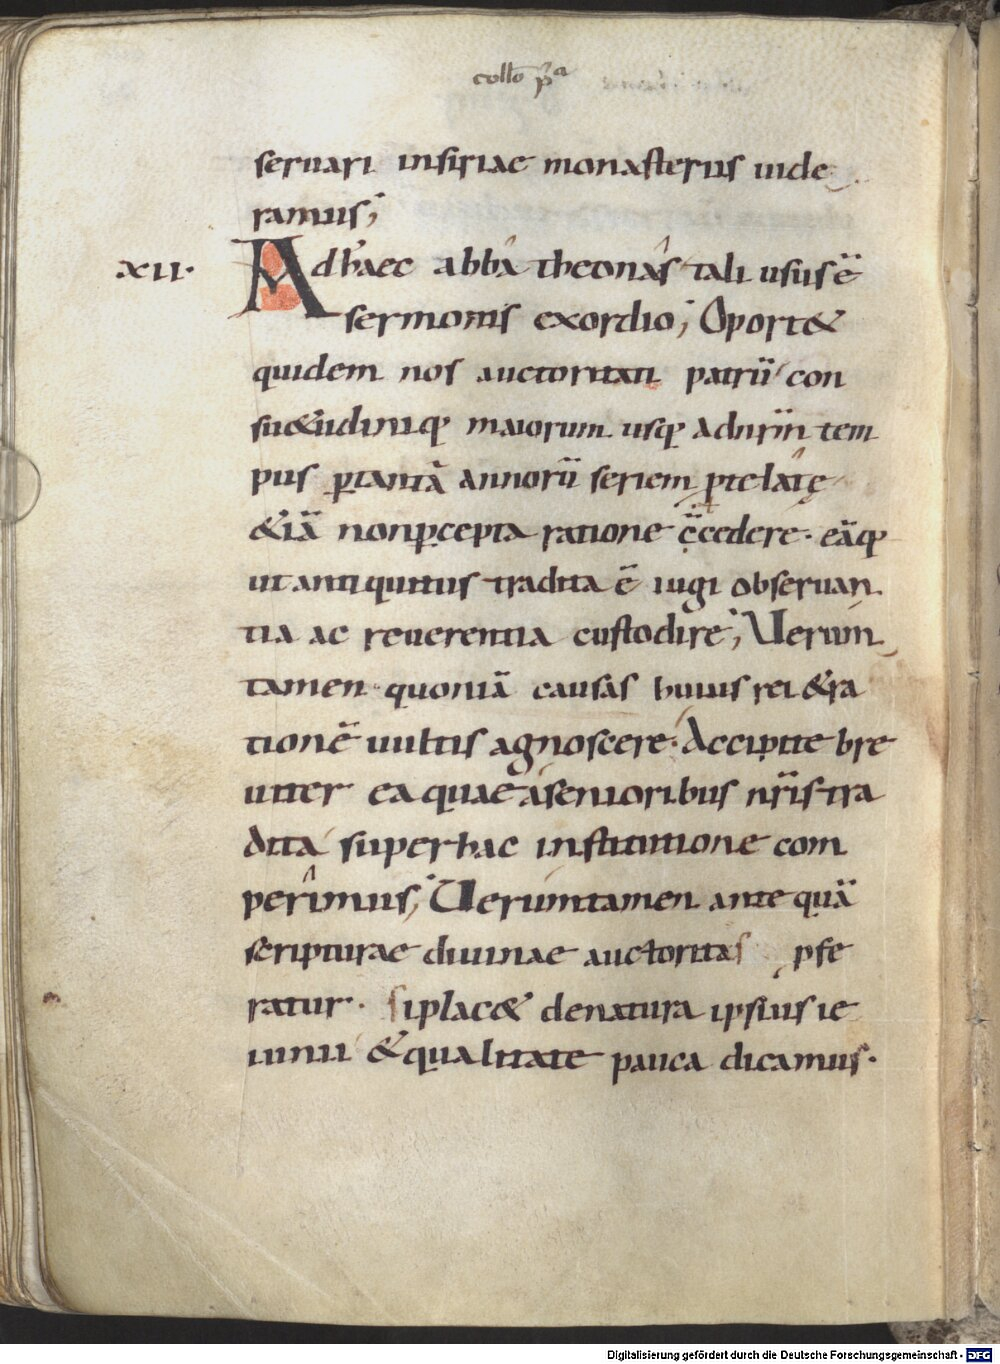 collō pᵃ
seruari insiriae monasteriis uide
ramus;
XII. Ad haec abbâ theonâs tali usus ē
sermonis exordio; Oport&
quidem nos auctoritati patrū con
su&udiniq; maiorum usq; ad nr̄m tem
pus ꝑ tantā annorū seriem ꝓtelâtę
&iā non ꝑcepta ratione c̄cedere. eāq;
ut antiquitus tradita ē iugi obseruan
tia ac reuerentia custodire; Uerum
tamen quoniā causas huius rei & ra
tionē uultis agnoscere. Accipite bre
uiter ea quae a senioribus nr̄is tra
dita super hac institutione com
perîmus; Ueruntamen ante quā
scripturae diuinae auctoritas p̄fe
ratur. si plac& de natura ipsius ie
iunii & qualitate pauca dicamus.
Digitalisierung gefördert durch die Deutsche Forschungsgemeinschaft - DFG